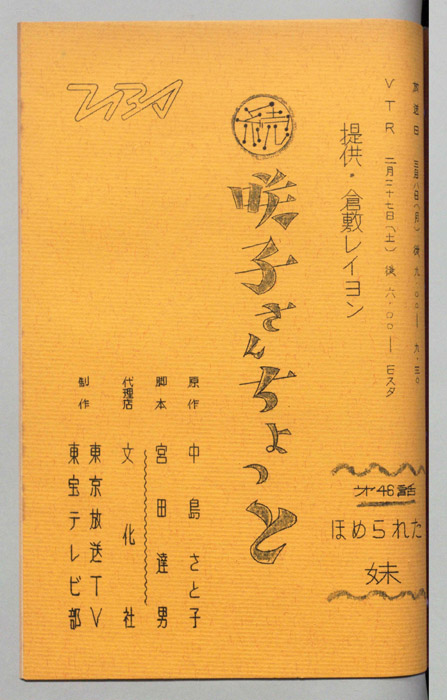 放送日 三月八日(月) 後 九.〇〇— 九.三〇
VTR 二月二十七日(土) 後 六.〇〇—
提供・倉敷レイヨン
才46話
ほめられた
妹
続
咲子さんちょっと
原作 中島さと子
脚本 宮田達男
代理店 文化社
制作 東京放送TV
東宝テレビ部